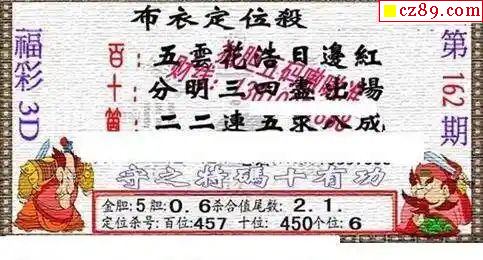 cz89.com
布衣定位殺
福彩3D
第162期
百: 五雲花浩日邊紅
十: 分明三四盡出場
箇: 二二連五來八成
守之将碼十有功
金胆:5胆:0.6杀合值尾数:2.1.
定位杀号:百位:457 十位:450个位:6